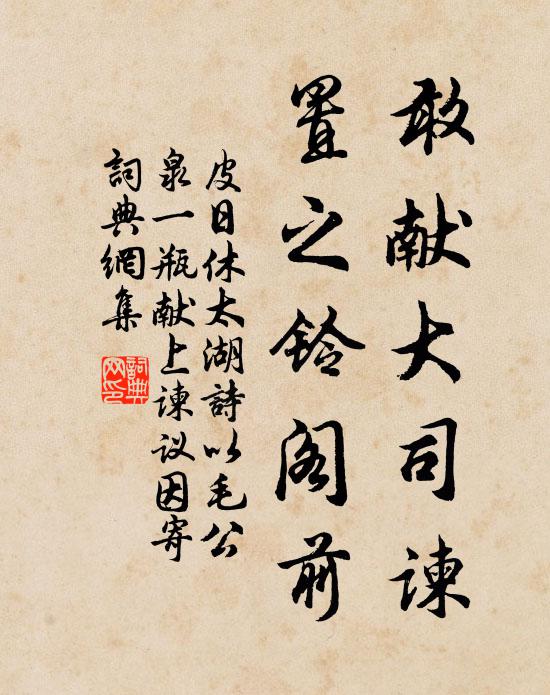 敢献大司谏
置之鈴阁前
皮日休太湖詩以毛公
泉一瓶献上谏议因寄
詞典網集
詞典网印